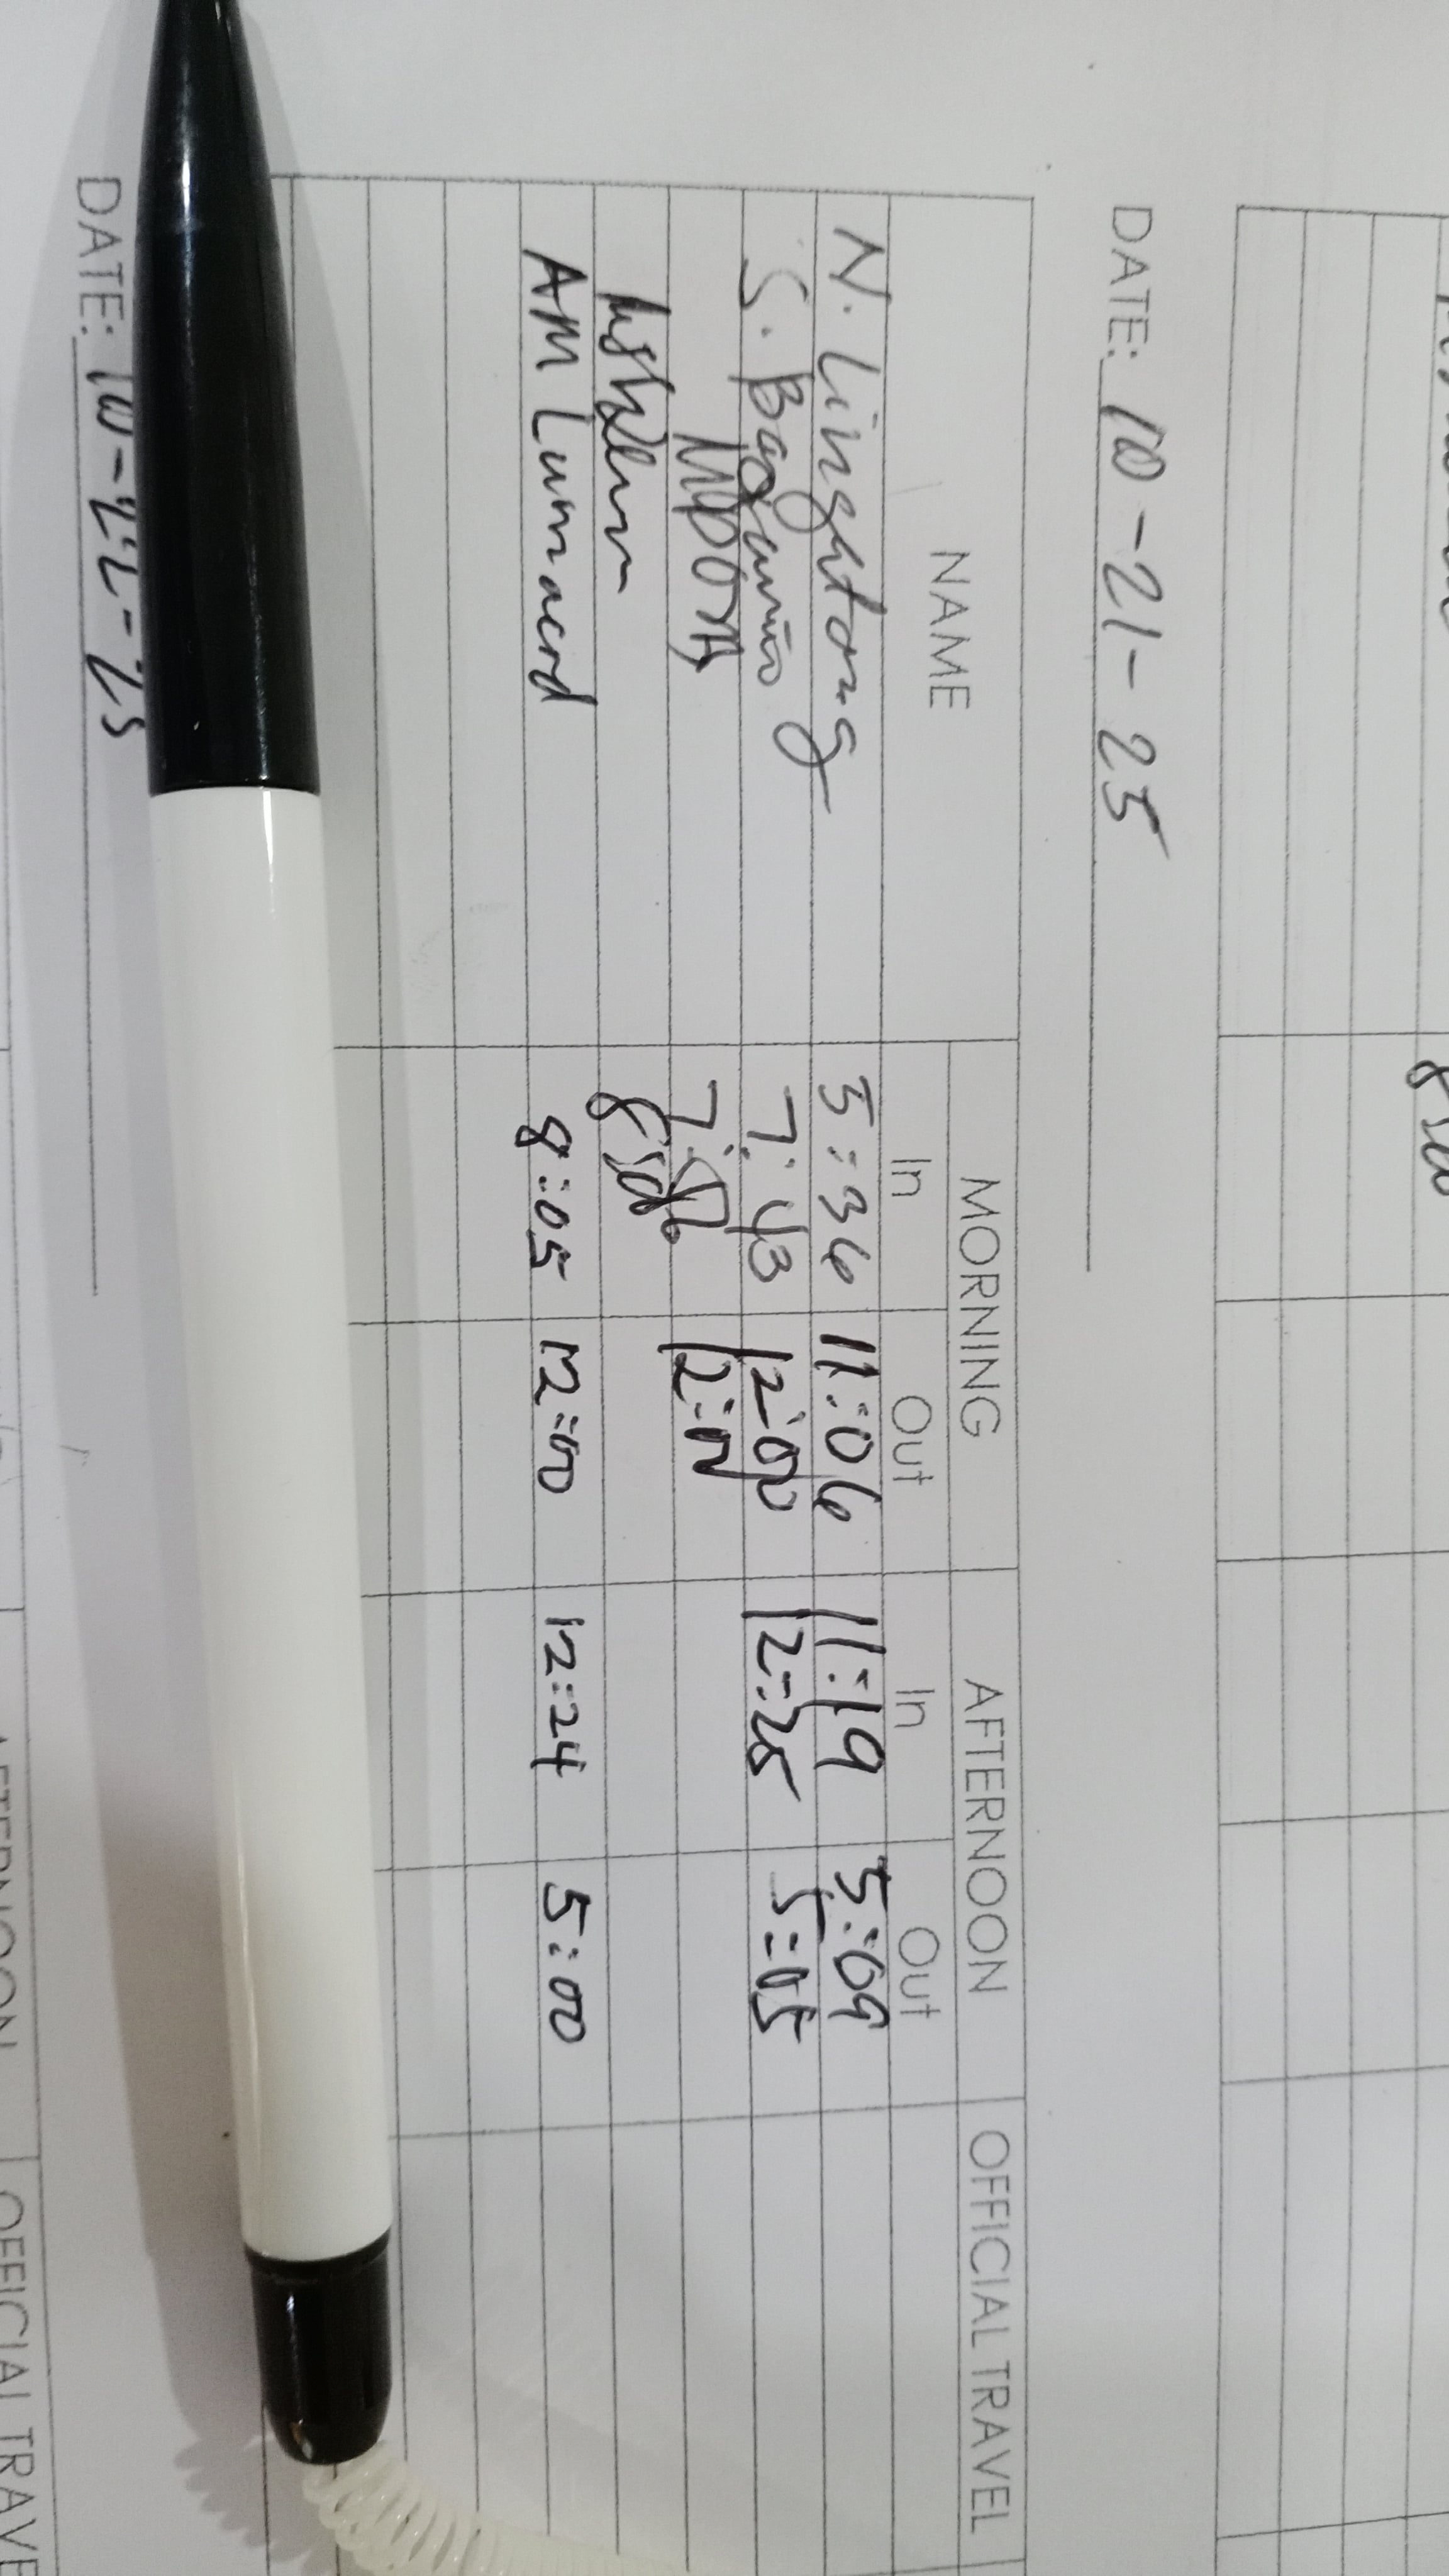 DATE: 10-21-25
NAME MORNING AFTERNOON OFFICIAL TRAVEL
In Out In Out
N. Linghtong 5:36 11:06 11:19 5:09
S. Bagamio 7:43 12:00 12:25 5:05
7:56 12:00
AM Lumacad 8:05 12:00 12:24 5:00
DATE: 10-22-25
AFTERNOON OFFICIAL TRAVE